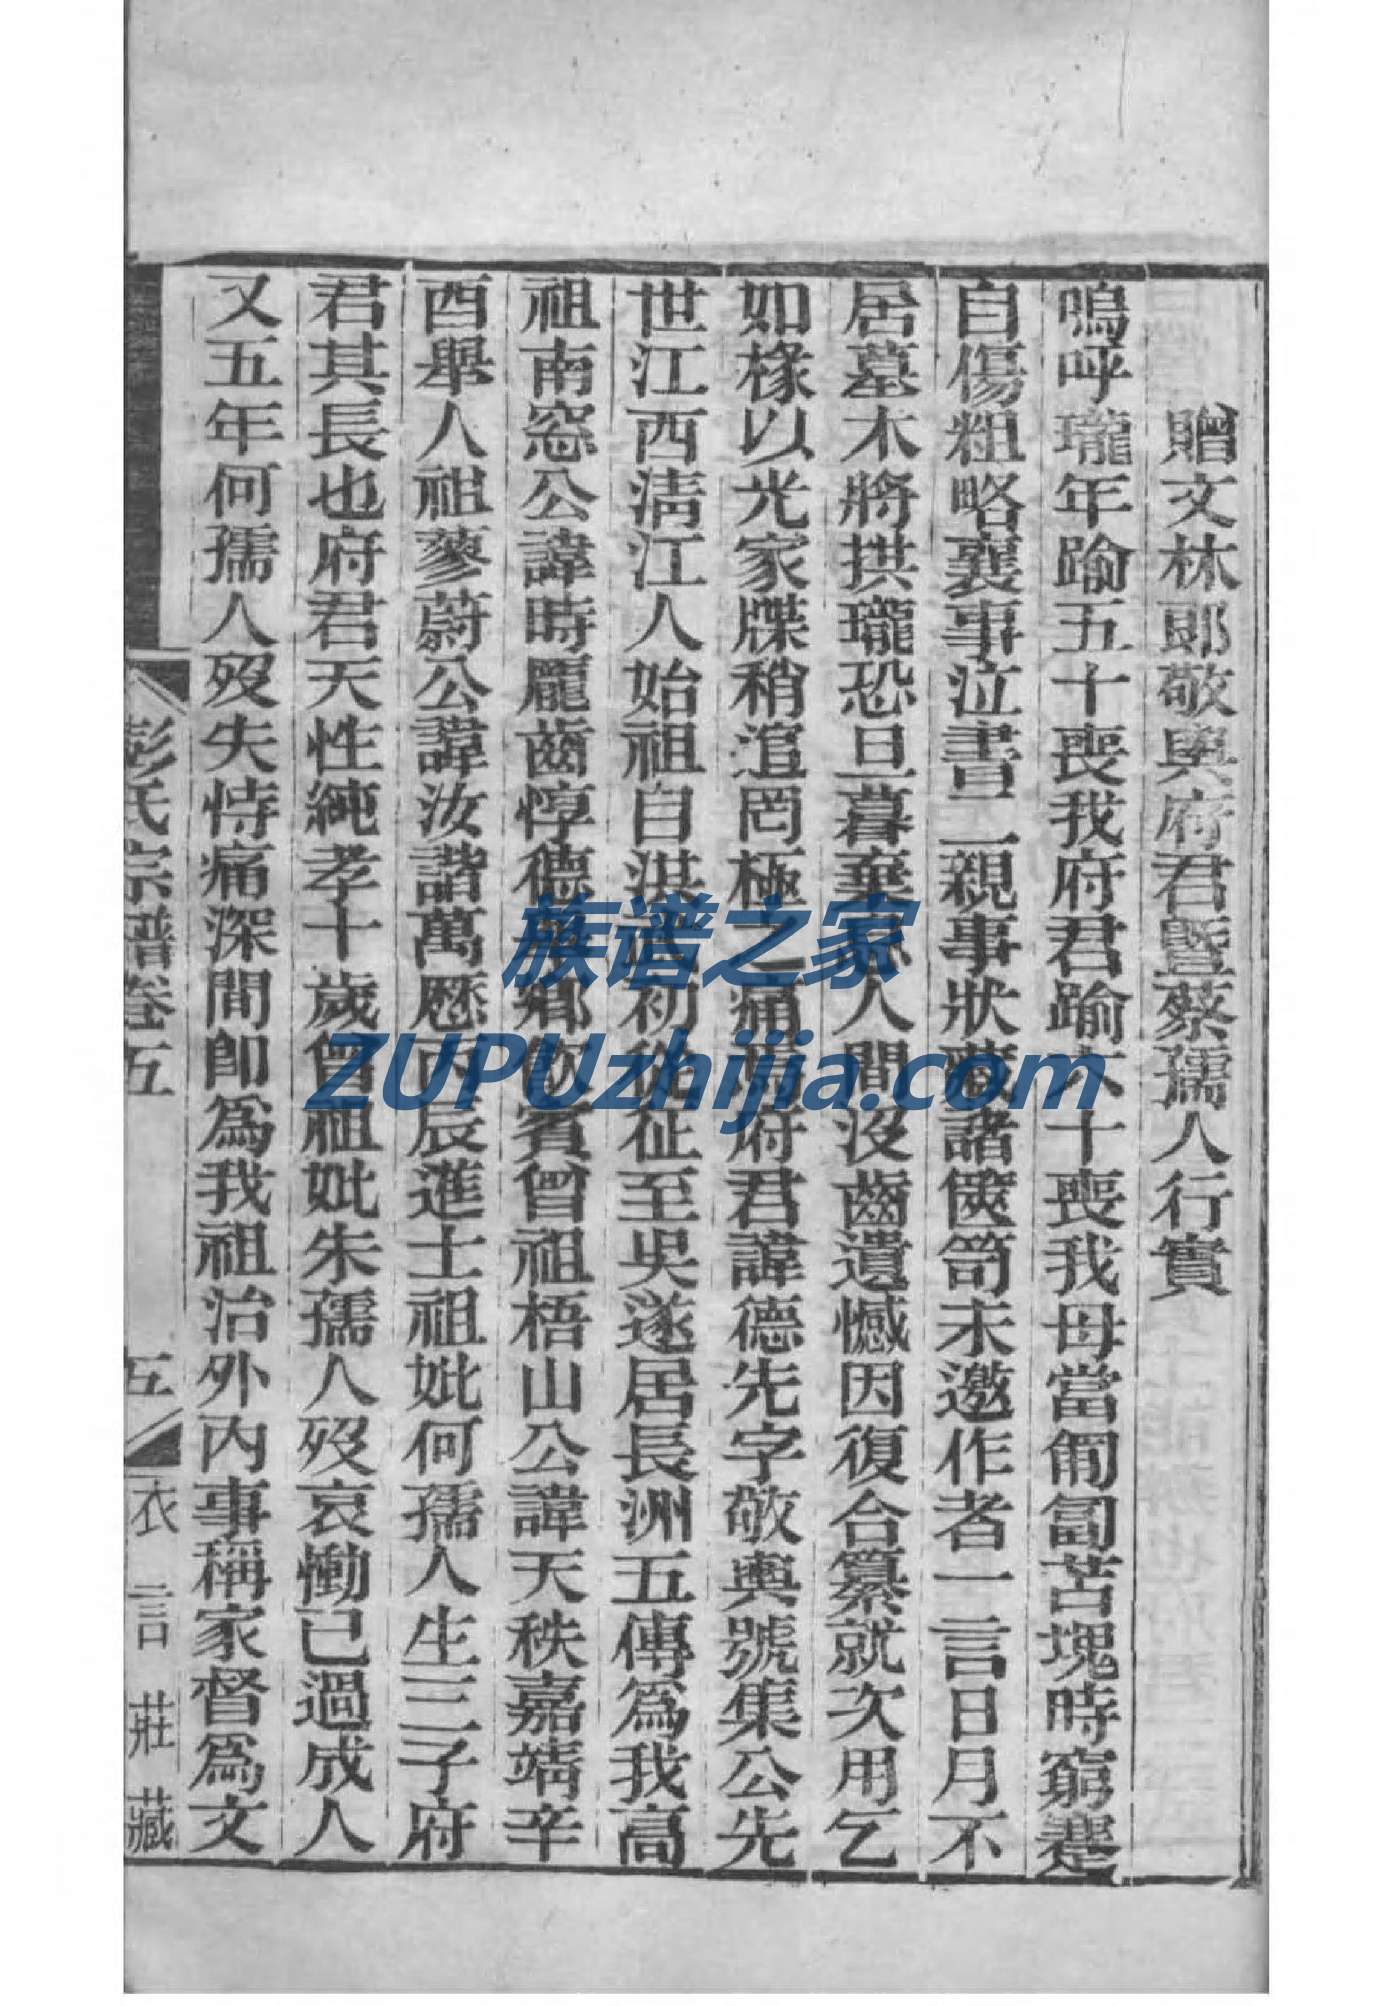 贈文林郎敬輿府君暨蔡孺人行實
嗚呼瓏年踰五十喪我府君踰六十喪我母當匍匐苫塊時窮蹇
自傷粗略襄事泣書二親事狀藏諸篋笥未邀作者一言日月不
居墓木將拱瓏恐旦暮棄 人間沒齒遺憾因復合纂就次用乞
如椽以光家牒稍逭罔極之痛 府君諱德先字敬輿號集公先
世江西清江人始祖自洪武初從征至吳遂居長洲五傳為我高
祖南窓公諱時龎齒惇德 鄉飲賓曾祖梧山公諱天秩嘉靖辛
酉舉人祖蓼蔚公諱汝諧萬厯丙辰進士祖妣何孺人生三子府
君其長也府君天性純孝十歲曾祖妣朱孺人歿哀慟已過成人
又五年何孺人歿失恃痛深間即為我祖治外內事稱家督為文
彭氏宗譜卷五
五
衣言莊藏
族谱之家
ZUPUzhijia.com